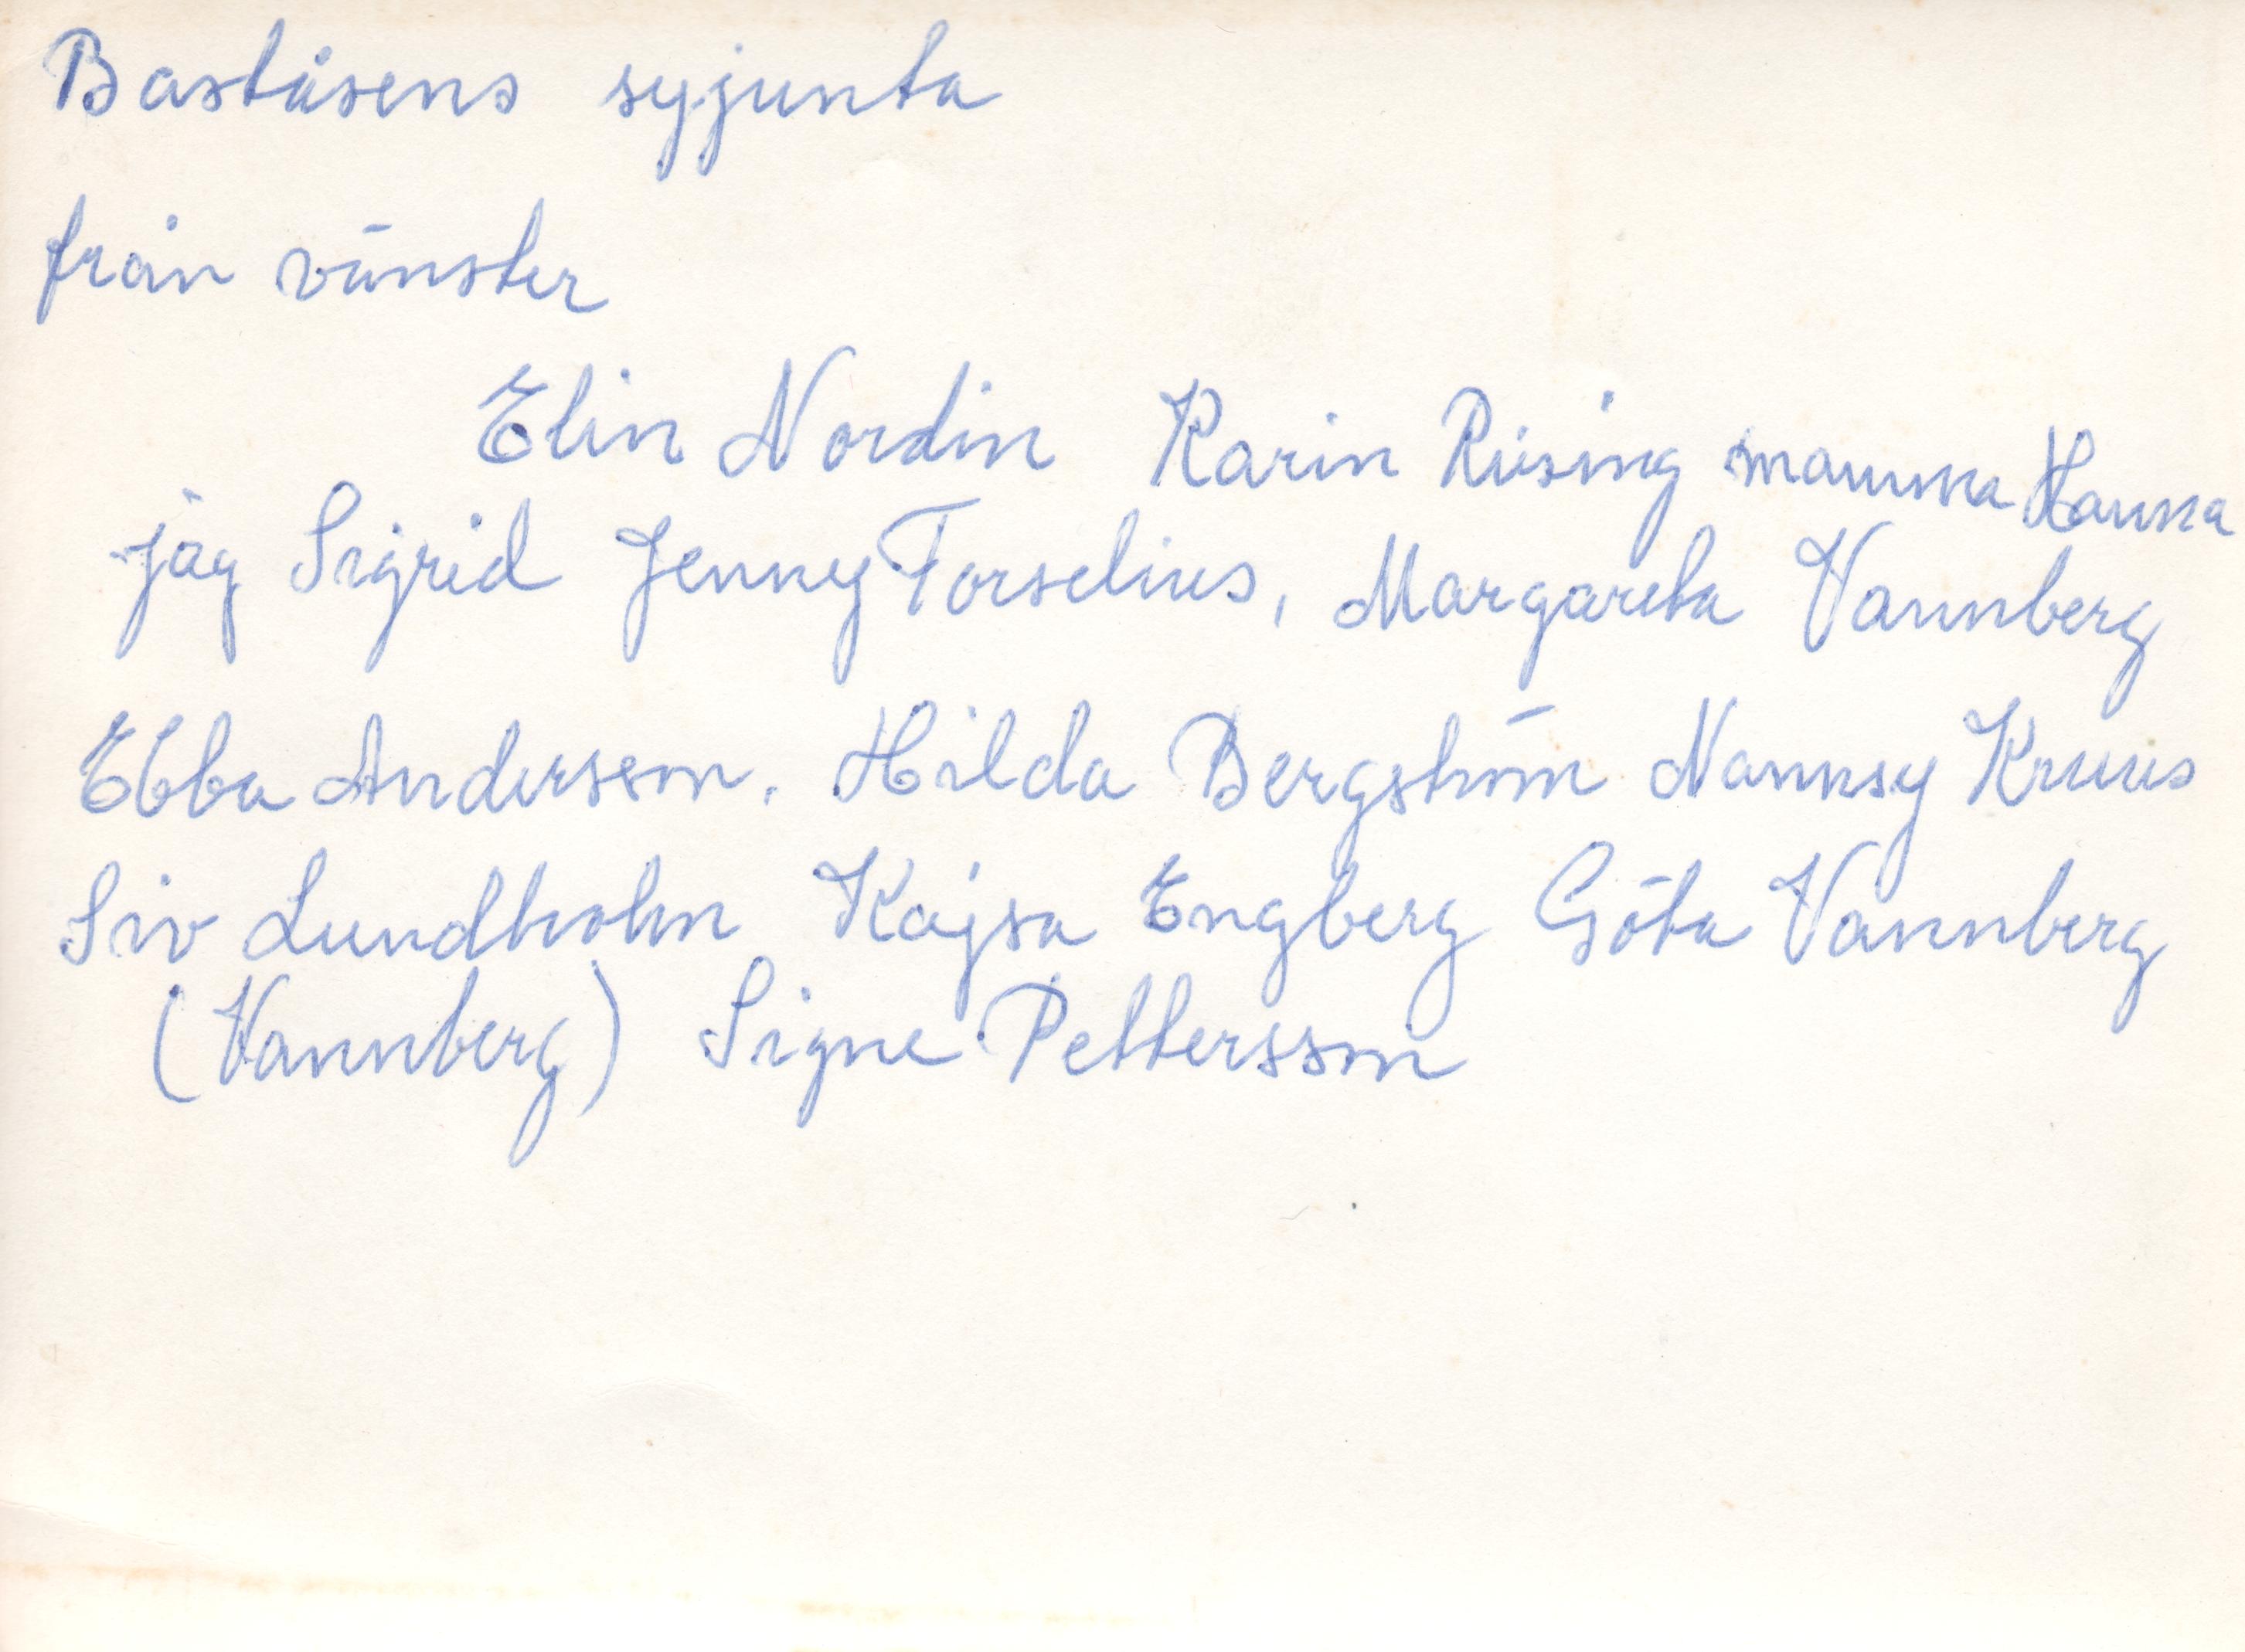 Baståsens syjunta
från vänster
Elin Nordin Karin Rising mamma Hanna
jag Sigrid Jenny Torselius, Margareta Vannberg
Ebba Andersson. Hilda Bergström Nannsy Kruus
Siv Lundholm Kajsa Engberg Göta Vannberg
(Vannberg) Signe Pettersson